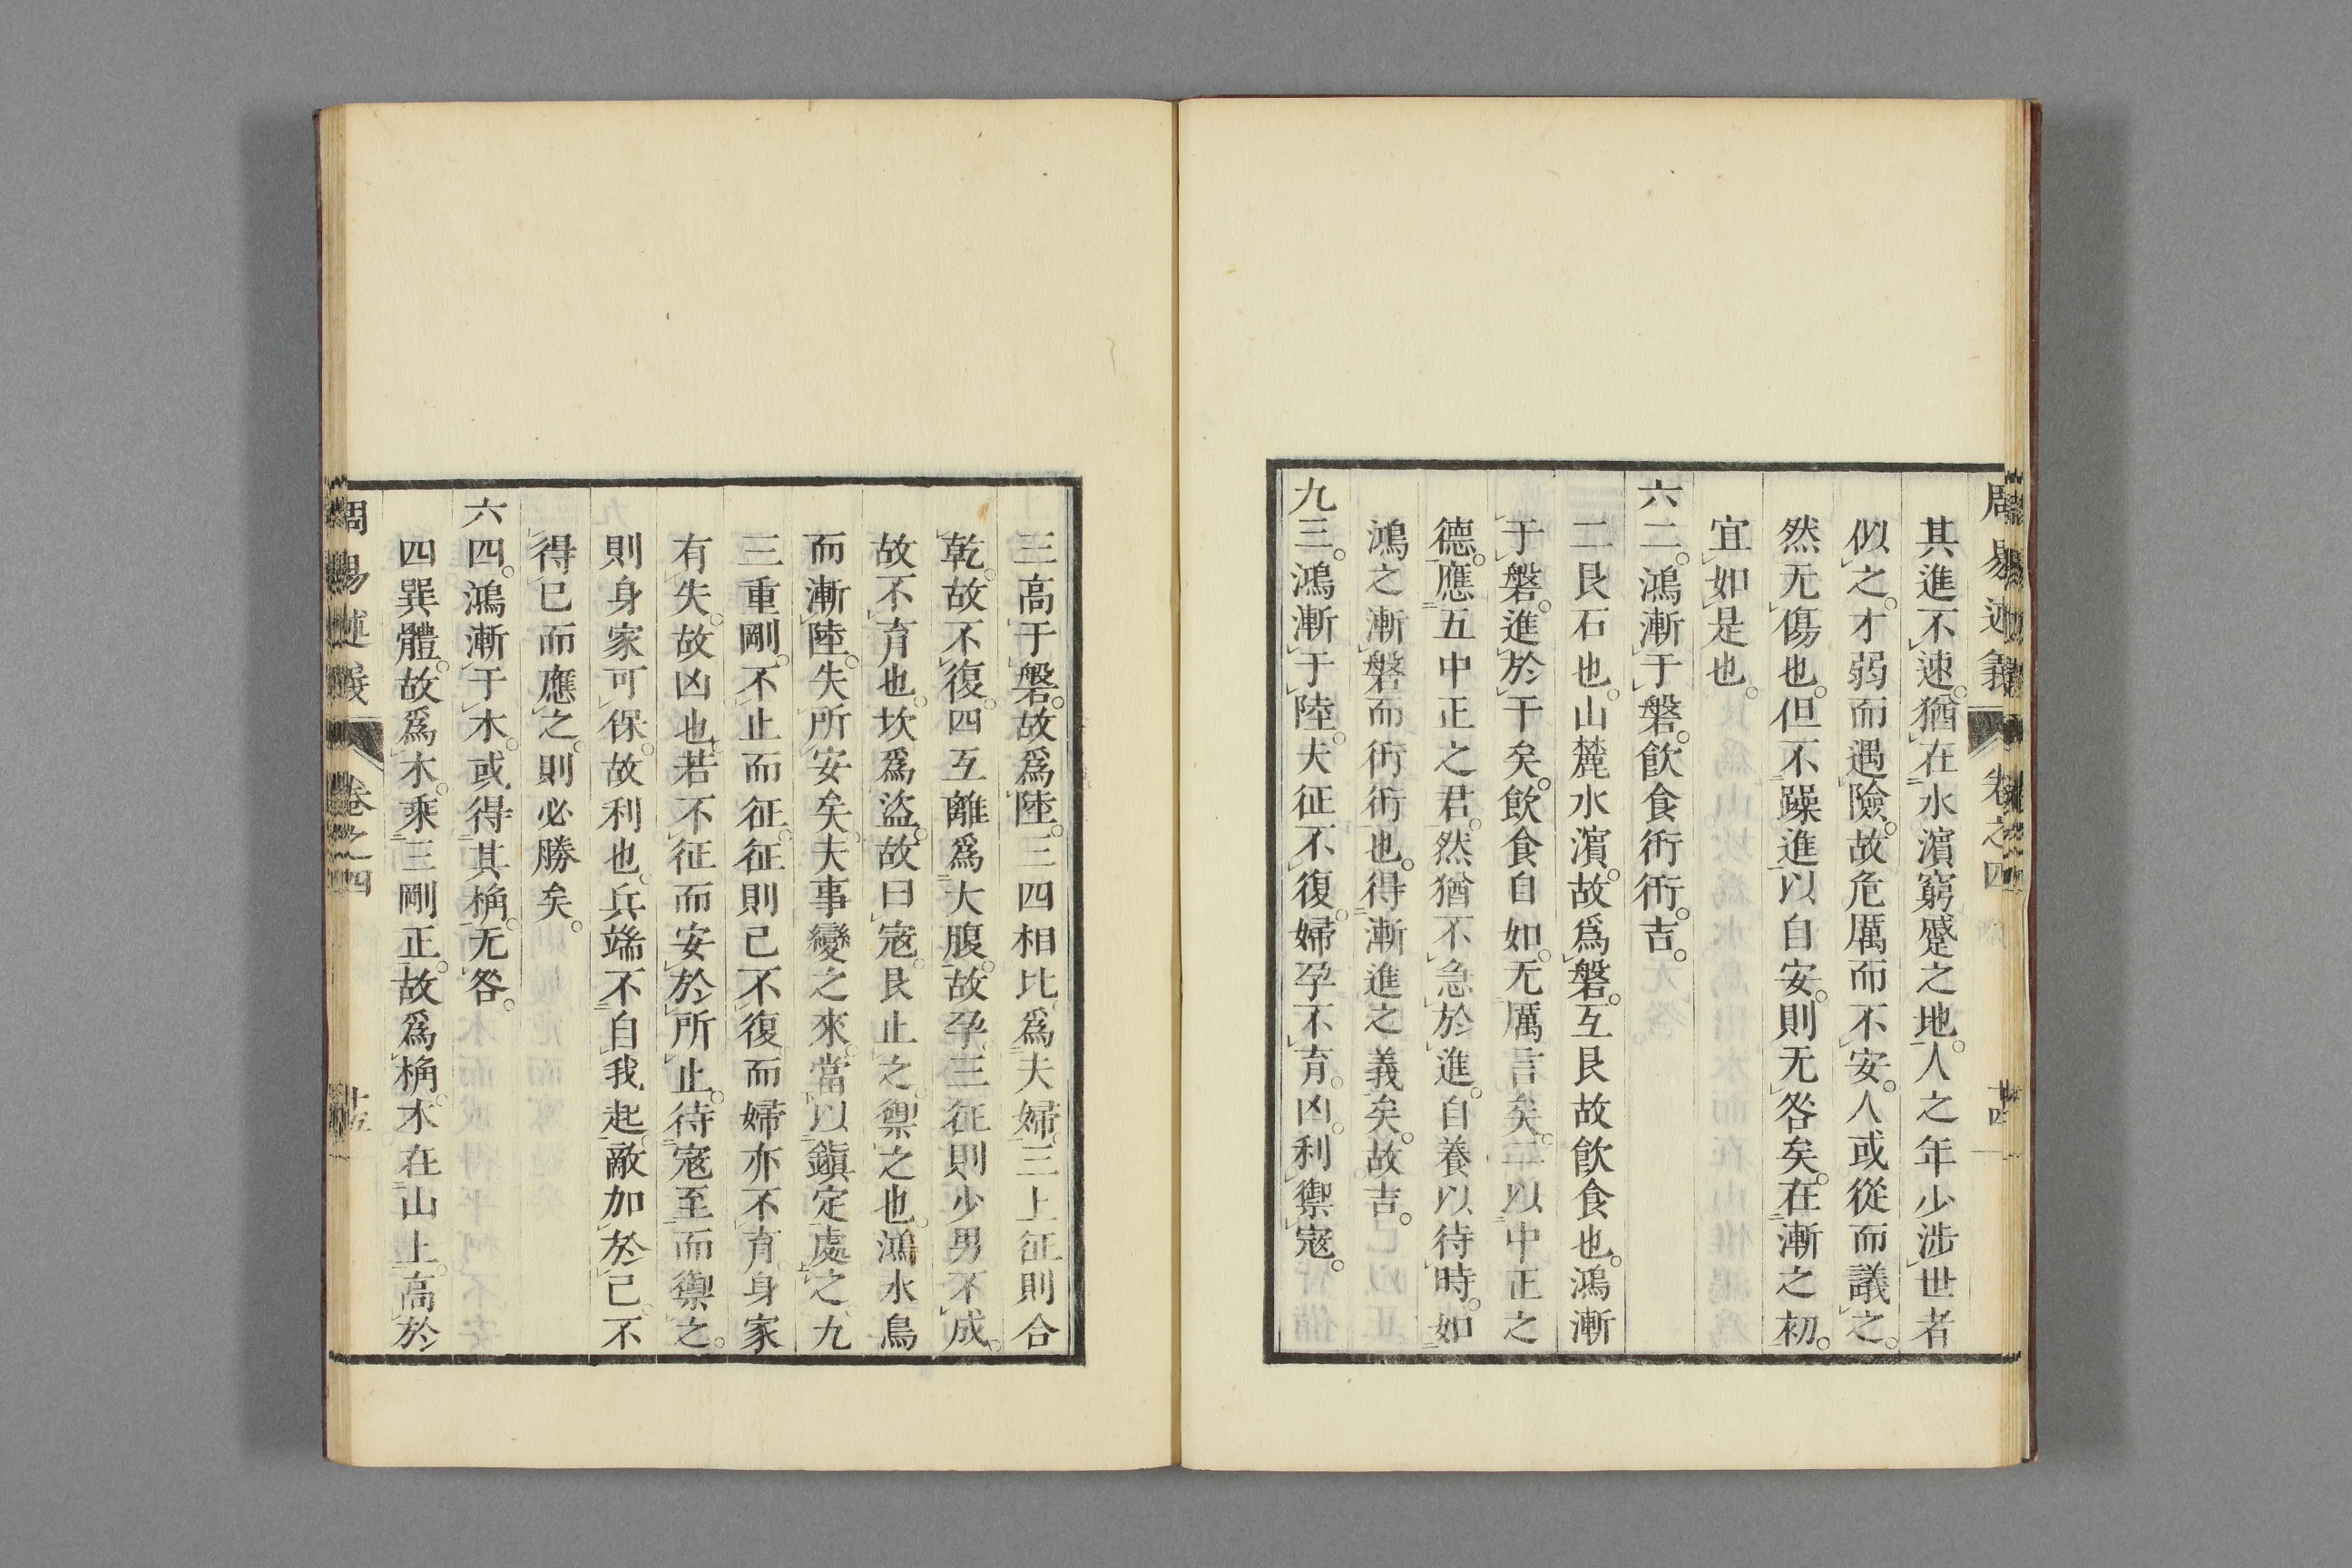 周易述義 卷之四 十四
其進不速。猶在水濵窮蹙之地。人之年少涉世者
似之。才弱而遇險。故危厲而不安。人或從而議之。
然无傷也。但不躁進以自安。則无咎矣。在漸之初。
宜如是也。
六二。鴻漸于磐。飲食衎衎。吉。
二艮石也。山麓水濵。故爲磐。互艮故飲食也。鴻漸
于磐。進於干矣。飲食自如。无厲言矣。二以中正之
德。應五中正之君。然猶不急於進。自養以待時。如
鴻之漸磐而衎衎也。得漸進之義矣。故吉。
九三。鴻漸于陸。夫征不復。婦孕不育。凶。利禦寇。
三高于磐。故爲陸。三四相比。爲夫婦。三上征則合
乾。故不復。四互離爲大腹。故孕。三征則少男不成。
故不育也。坎爲盜。故曰寇。艮止之。禦之也。鴻水鳥
而漸陸。失所安矣。夫事變之來。當以鎭定處之。九
三重剛。不止而征。征則己不復而婦亦不育。身家
有失。故凶也。若不征而安於所止。待寇至而禦之。
則身家可保。故利也。兵端不自我起。敵加於己。不
得已而應之。則必勝矣。
六四。鴻漸于木。或得其桷。无咎。
四巽體。故爲木。乘三剛正。故爲桷。木在山上。高於
周易述義 卷之四 十五